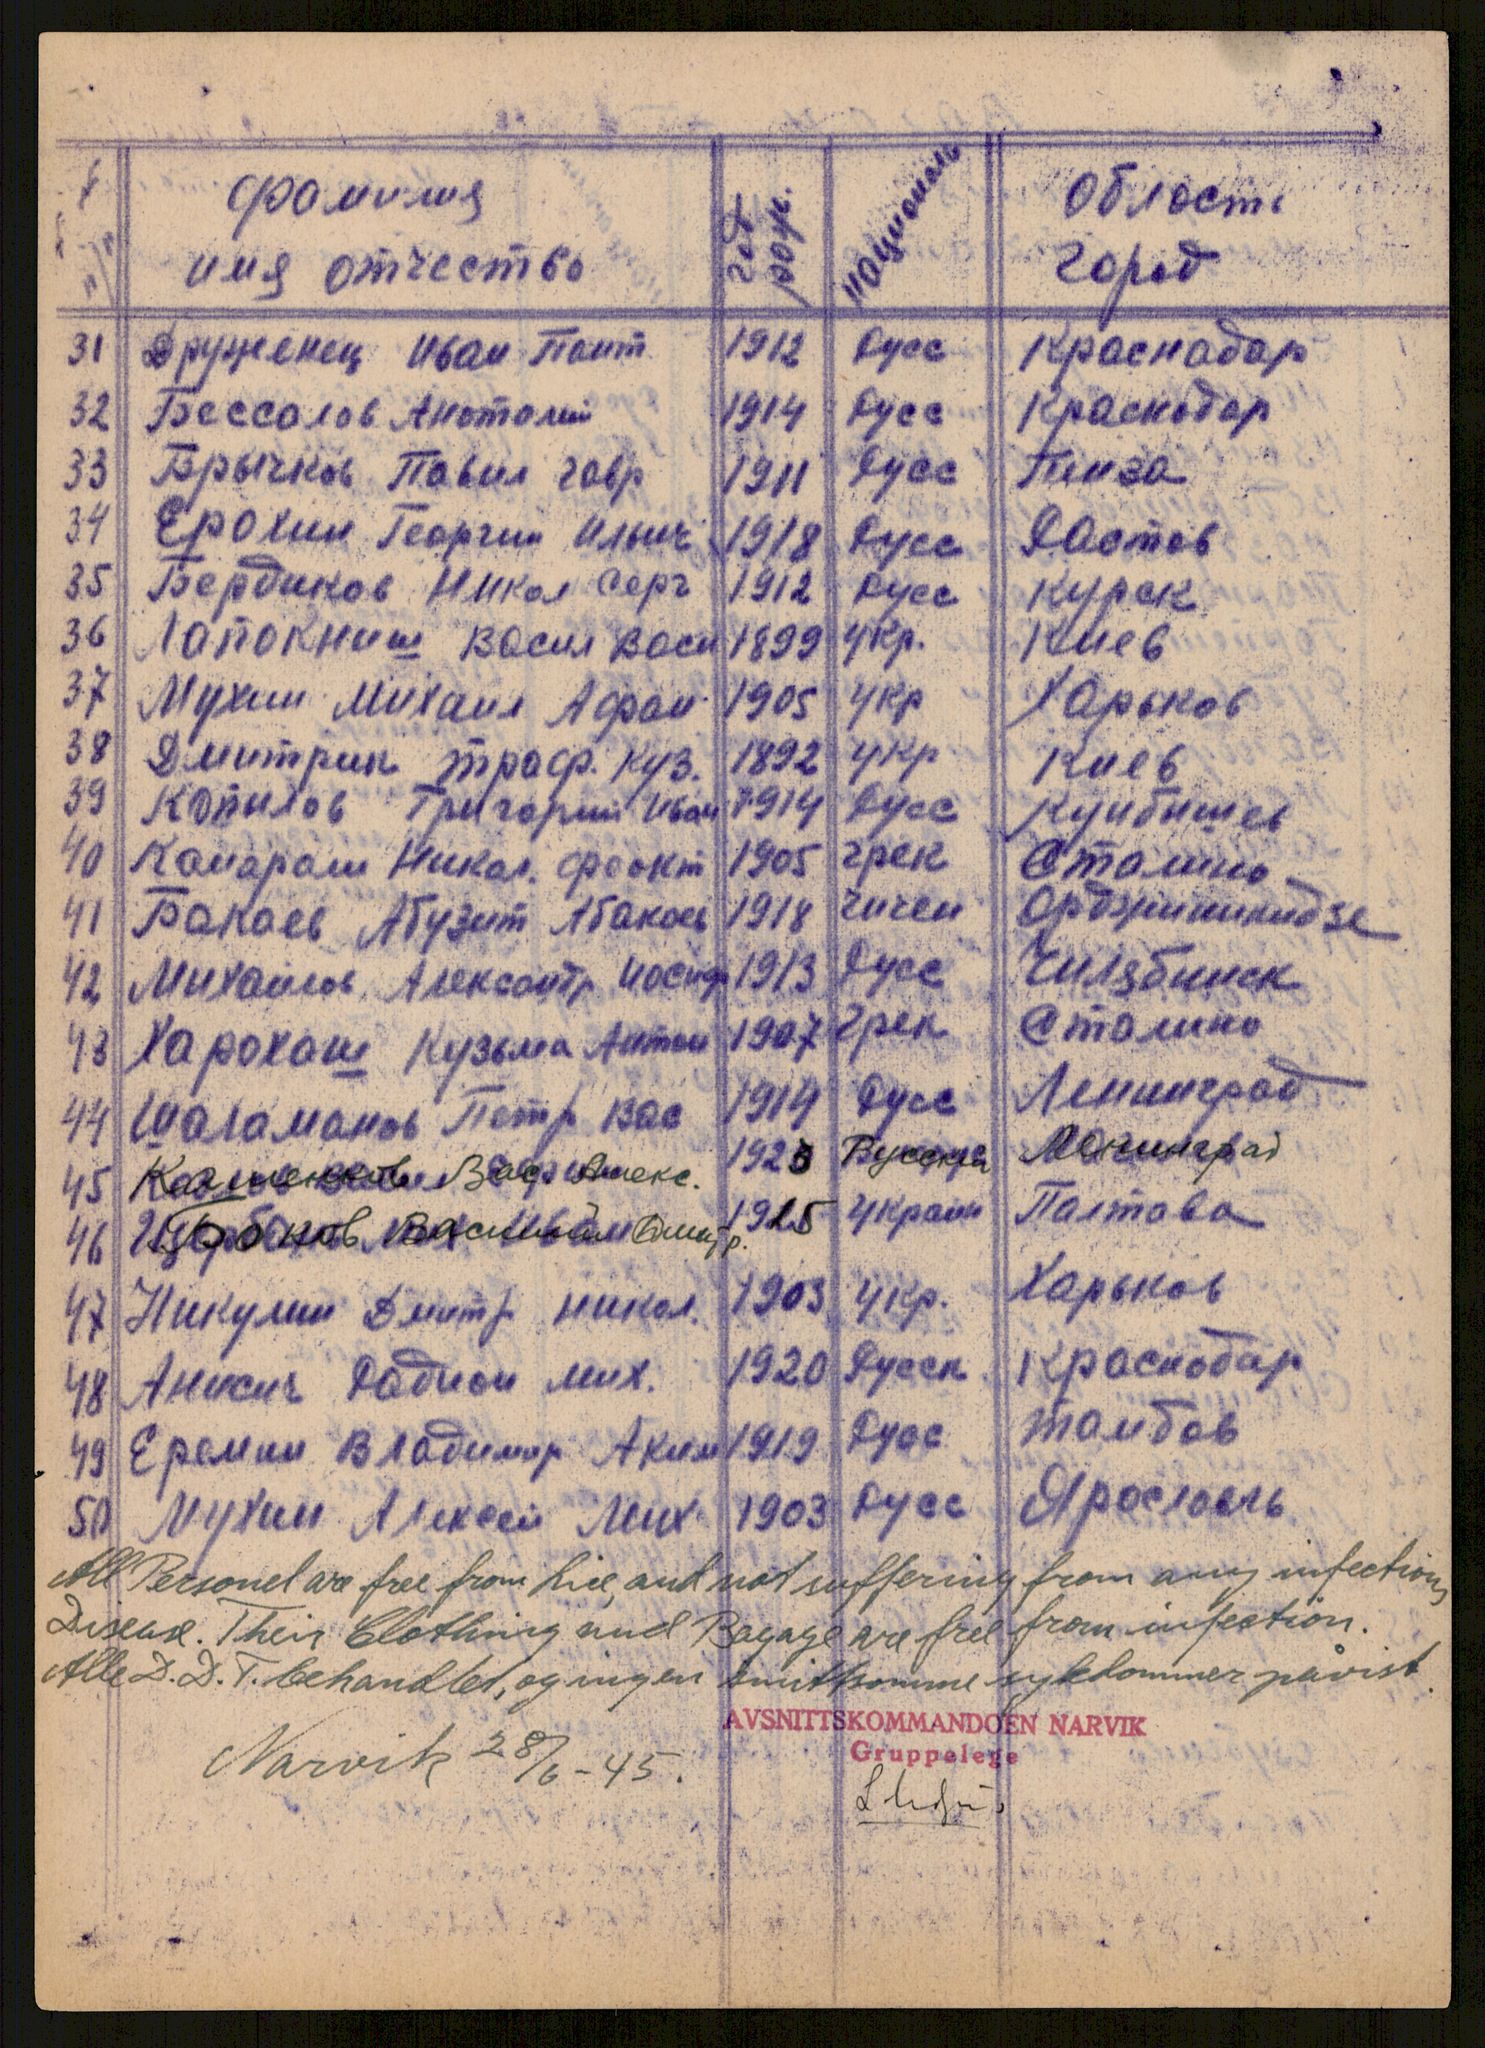 № п/п Фамилия имя отчество год рожд. национальн Область город
31 Друженец Иван Пант 1912 Русс Краснадар
32 Бессалов Анатолий 1914 Русс Краснодар
33 Брычков Павил Гавр 1911 Русс Пенза
34 Ерохин Георгии Ильич 1918 Русс Растов
35 Бердиков Никол Серг 1912 Русс Курск
36 Лапокниш Васил Васи 1899 Укр. Киев
37 Мухин Михаил Афан 1905 Укр Харьков
38 Дмитрик Троф. Куз. 1892 Укр Киев
39 Копылов Григорий Иван 1914 Русс Куибишев
40 Канараш Никол. Феокт 1905 Грек Сталино
41 Бакаев Абузит Абакаев 1918 Чичен Орджиникидзе
42 Михаилов Алексантр Иосиф 1913 Русс Чилябинск
43 Харохаш Кузьма Антон 1907 Грек Сталино
44 Шаламанов Петр Вас 1914 Русс Ленинград
45 Вас. Алекс. 1923 Русский Ленинград
46 Боков Василий Дмитр. 1925 Украин Палтава
47 Никулин Дмитр Никол. 1903 Укр. Харьков
48 Анисич Радион Мих. 1920 Русск Краснодар
49 Еремин Владимир Аким 1919 Русс Тамбов
50 Мухин Алексей Мих 1903 Русс Ярославль
All Personel are free from Lice, and not suffering from any infections
Disease. Their Clothing and Bagage are free from infection.
Alle D.D.T. behandlet, og ingen smittsomme sykdommer påvist.
AVSNITTSKOMMANDOEN NARVIK
Gruppelege
Narvik 28/6-45.